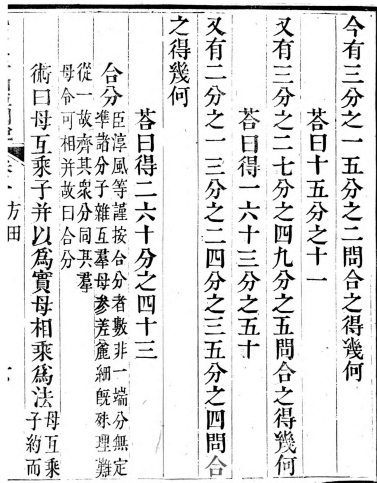 今有三分之一五分之二問合之得幾何
荅曰十五分之十一
又有三分之二七分之四九分之五問合之得幾何
荅曰得一六十三分之五十
又有二分之一三分之二四分之三五分之四問合
之得幾何
荅曰得二六十分之四十三
合分
臣淳風等謹按合分者數非一端分無定
準諸分子雜互羣母參差麄細旣殊理難
從一故齊其衆分同其羣
母令可相并故曰合分
術曰母互乘子并以爲實母相乘爲法
母互乘
子約而
方田